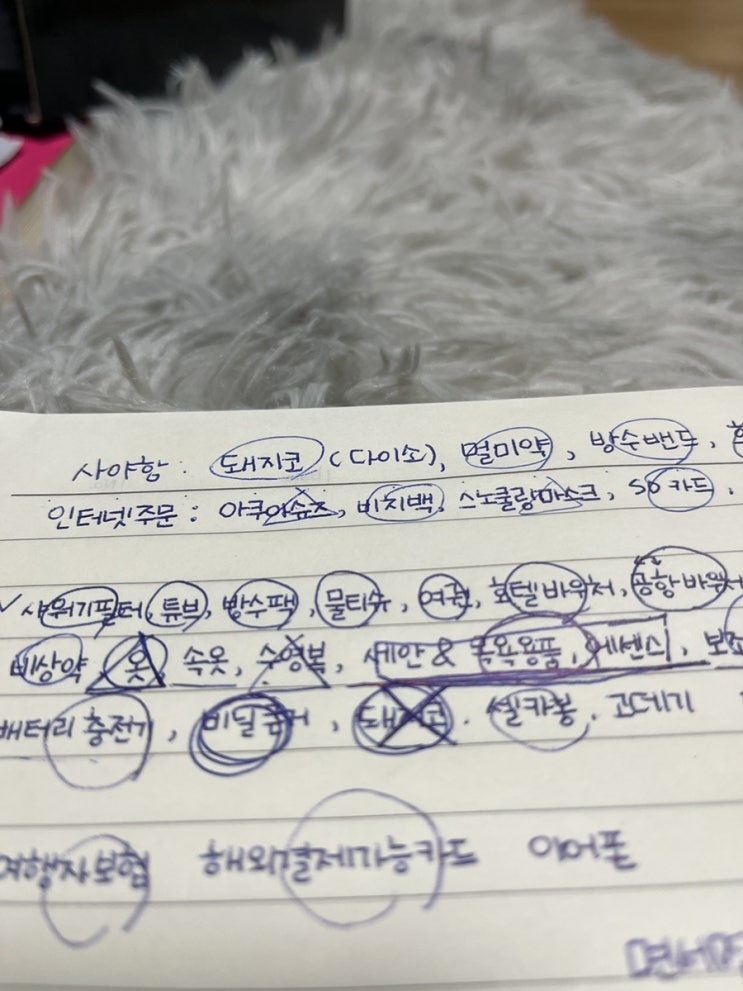 사야함 : 돼지코 (다이소), 멀미약, 방수밴드,
인터넷주문 : 아쿠아슈즈, 비치백, 스노쿨링마스크, SD 카드,
✓ 샤워기필터, 튜브, 방수팩, 물티슈, 여권, 호텔바우처, 공항바우처
비상약 옷 속옷, 수영복, 세안 & 목욕용품, 에센스,
배터리 충전기, 돼지코. 셀카봉. 고데기
여행자보험 해외결제가능카드 이어폰